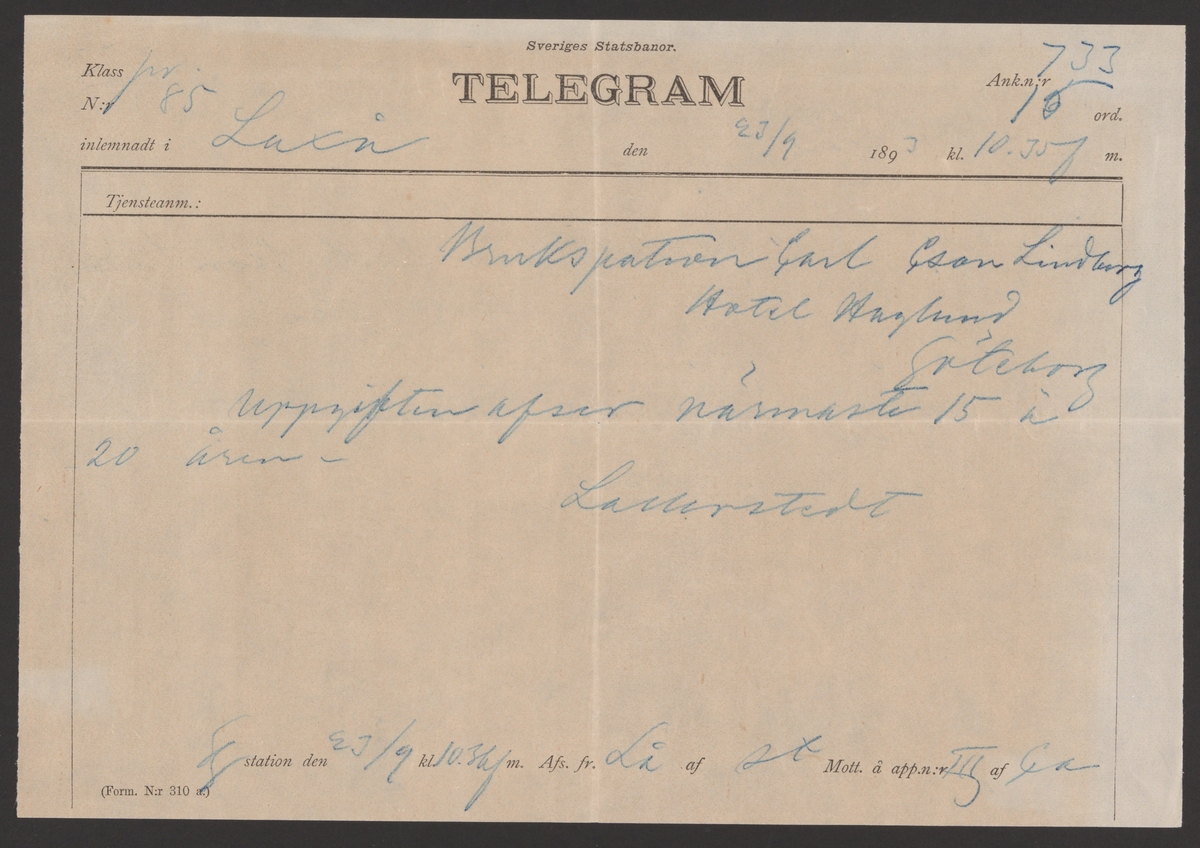 Sveriges Statsbanor.
TELEGRAM
Klass pr.
N:r 85
Ank.n:r 733
16 ord.
inlemnadt i Laxå den 23/9 1893 kl. 10.35 f m.
Tjensteanm.:
Brukspatron Carl Cson Lindberg
Hotel Haglund
Göteborg
Uppgiften afser närmaste 15 à
20 åren –
Lallerstedt
Gg station den 23/9 kl. 10.36 f m. Afs. fr. Lå af st Mott. å app.n:r III af Ca
(Form. N:r 310 a.)